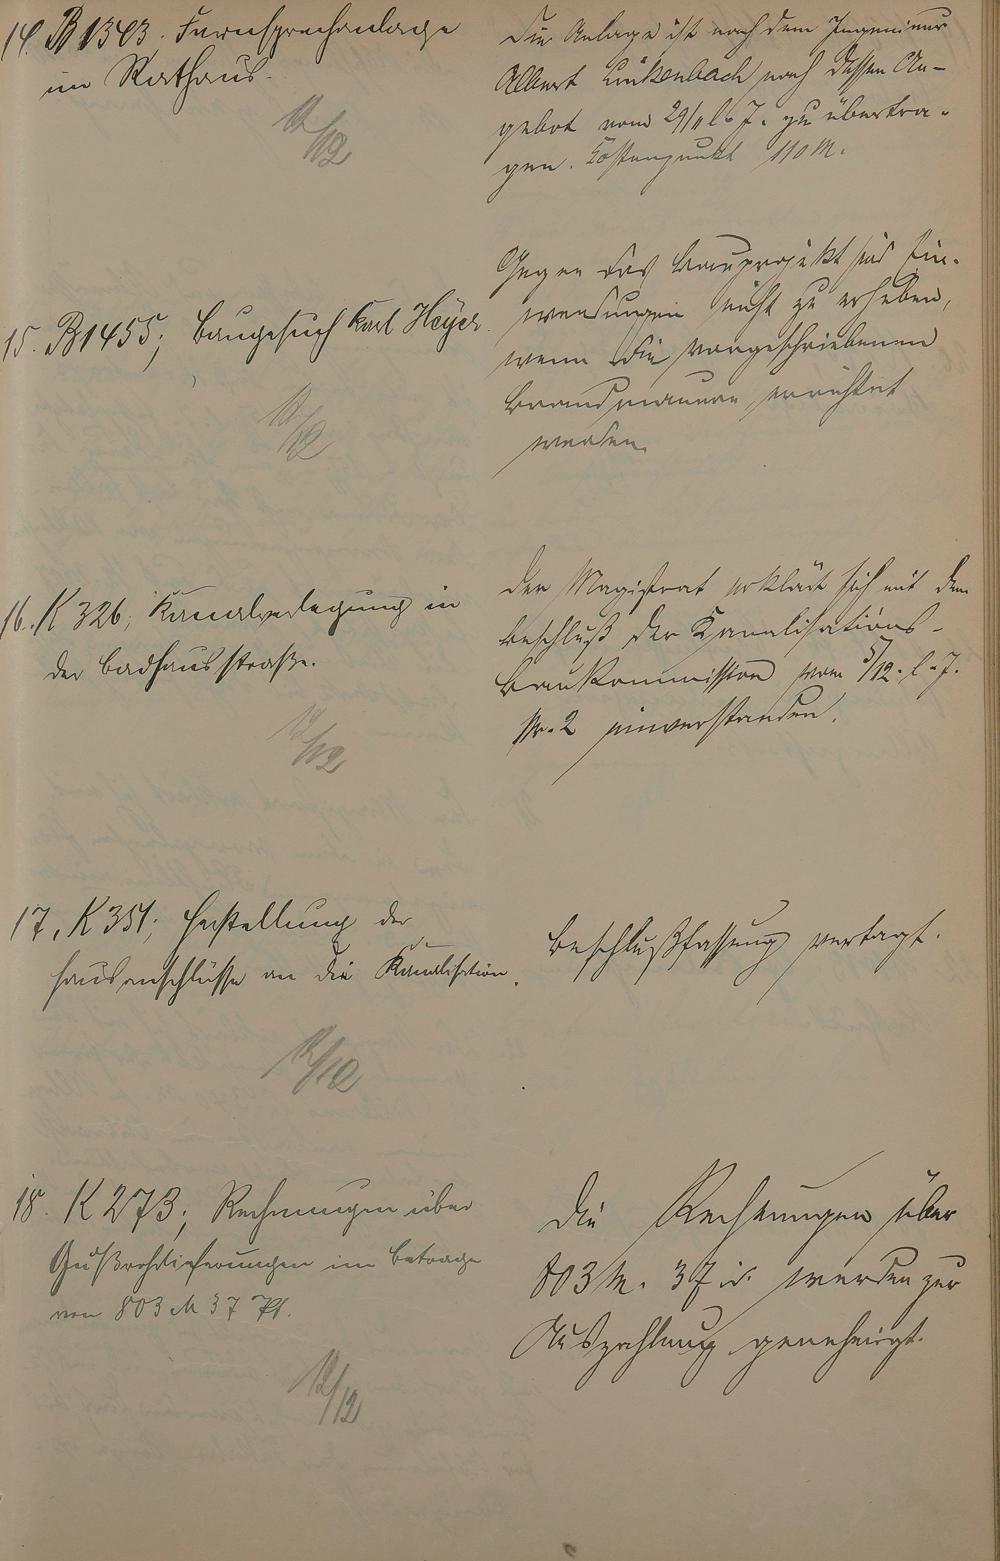 14. B 1343. Fernsprechanlage
im Rathaus.
12/12
Die Anlage ist nach dem Ingenieur
Albert Lückenbach nach dessen An-
gebot vom 29/11 l. J. zu übertra-
gen. Kostenpunkt 110 M.
15. B 1455; Baugesuch Karl Heyer.
12/12
Gegen das Bauprojekt sind Ein-
wendungen nicht zu erheben,
wenn die vorgeschriebenen
Brandmauern errichtet
werden.
16. K 326; Kanalverlegung in
der Badhausstraße.
12/12
Der Magistrat erklärt sich mit dem
Beschluß der Kanalisations-
Baukommission vom 5/12. l. J.
Nr. 2 einverstanden.
17. K 351; Herstellung der
Hausanschlüsse an die Kanalisation.
12/12
Beschlußfassung vertagt.
18. K 273; Rechnungen über
Gußrohrlieferungen im Betrage
von 803 M 37 Pf.
12/12
Die Rechnungen über
803 M. 37 werden zur
Auszahlung genehmigt.